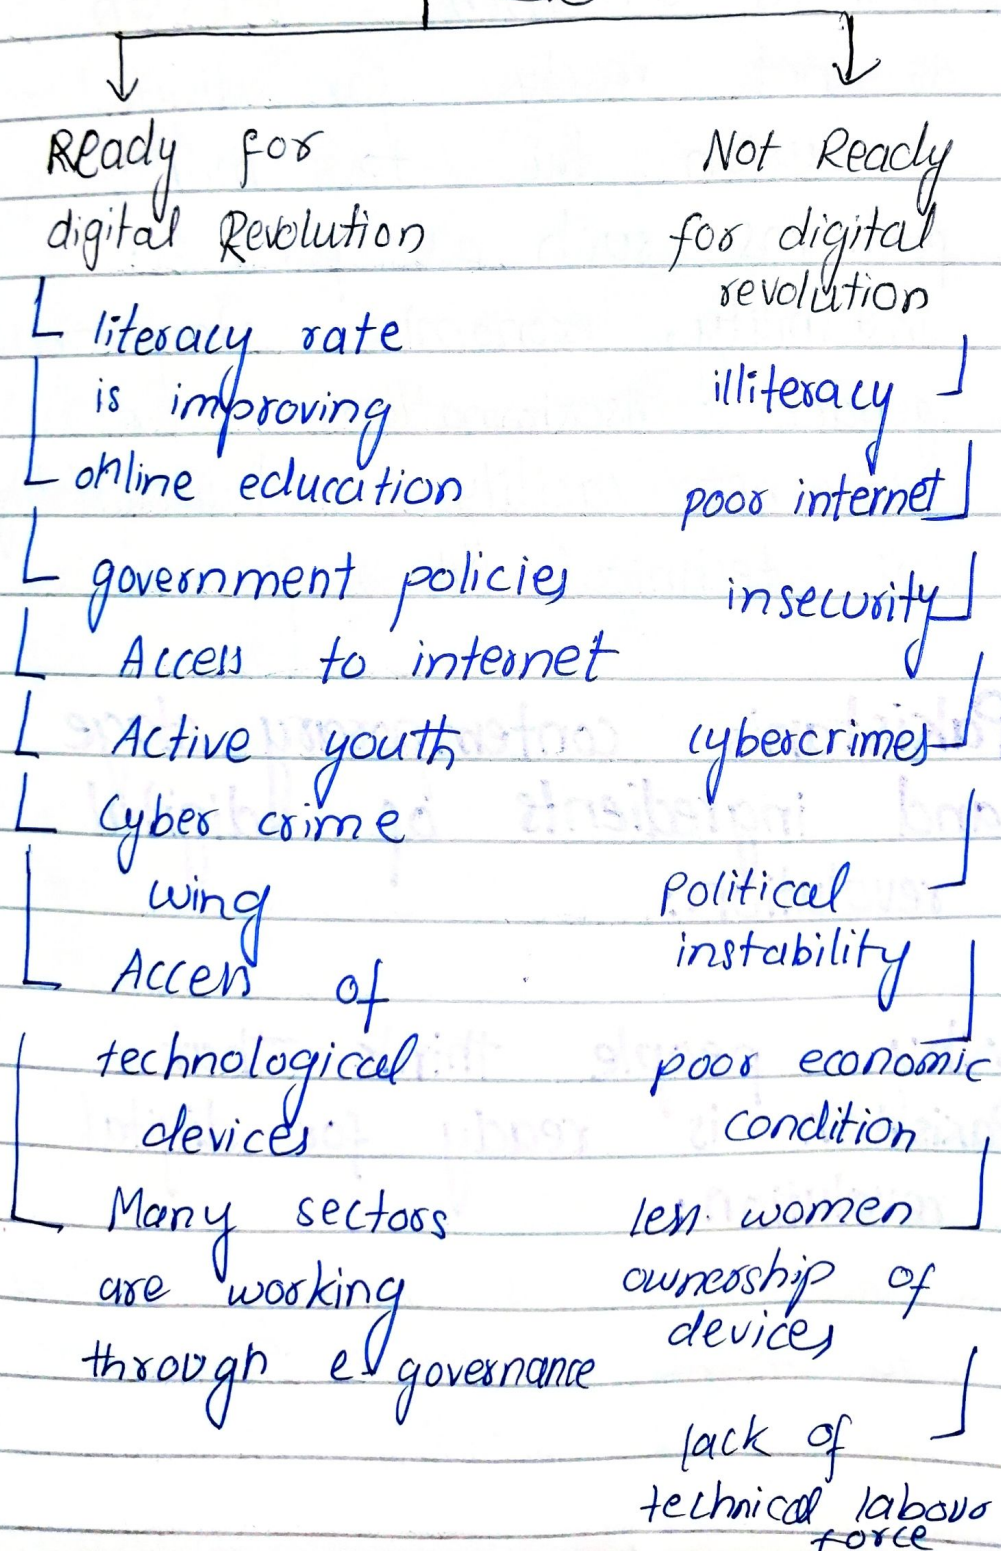 Ready for
digital Revolution
literacy rate
is improving
online education
government policies
Access to internet
Active youth
Cyber crime
wing
Access of
technological
devices
Many sectors
are working
through e governance
Not Ready
for digital
revolution
illiteracy
poor internet
insecurity
cybercrimes
Political
instability
poor economic
condition
less women
ownership of
devices
lack of
technical labour
force